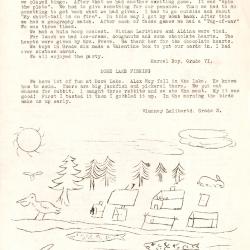 we played bingo. After that we had another exciting game. It was "spin
the plate." We had to give something for our pawns. Then we had to do
something to get it back. Some had to go outside and say three times,
"My shirt-tail is on fire". In this way I got my back. After this
we had a geography match. After each of these games we had a "Tug-of-war"
We won three times.
We had a hula hoop contest. William Laviviere and Albina were tied.
For lunch we had ice-cream, doughnuts and some chocolate hearts. The
hearts were given by Mrs. Preve. We thank her for the chocolate hearts.
We boys in Grade six made a Valentine box to put our cards in. I had
over sixteen cards.
We all enjoyed the party.
Marcel Roy, Grade VI.
DORE LAKE FISHING
We have lot of fun at Dore Lake. Alex May fell in the Lake. He knows
how to swim. There are big jackfish and pickerel there. We put out
snares for rabbit. I caught three rabbits and we ate the meat. My it was
good! First I tasted it then I gobbled it up. In the morning the birds
wake us up early.
Vianney Laliberté, Grade 3.